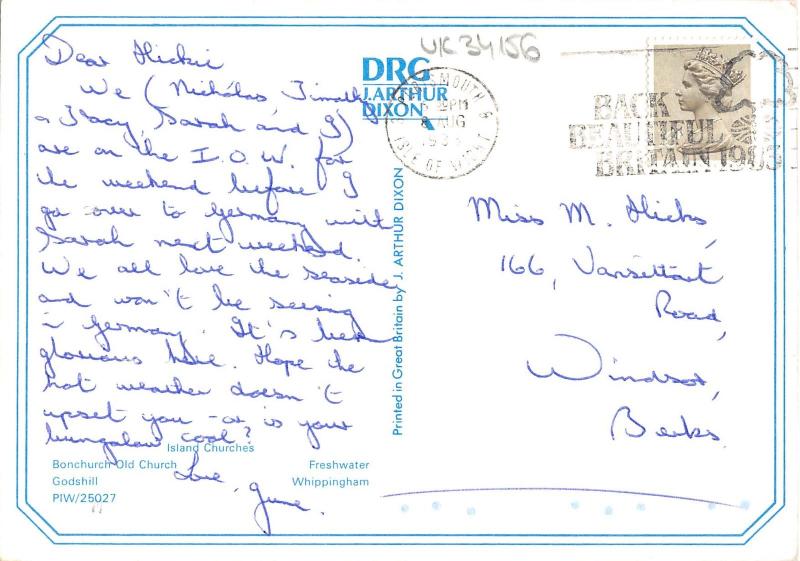 UK34156
Dear Hickie
We (Nicholas, Timothy
a Tracy, Sarah and I)
are on the I.O.W. for
the weekend before I
go over to Germany with
Sarah next weekend.
We all love the seaside
and won't be seeing
in Germany. It's been
glorious here. Hope the
hot weather doesn't
upset you - or is your
bungalow cool?
Love,
June.
DRG
J. ARTHUR
DIXON
Printed in Great Britain by J. ARTHUR DIXON
PORTSMOUTH &
PM
8 AUG
ISLE OF WIGHT
BACK
BEAUTIFUL
BRITAIN 1983
Miss M. Hicks,
166, Vansittart
Road,
Windsor,
Berks.
Island Churches
Bonchurch Old Church Freshwater
Godshill Whippingham
PIW/25027